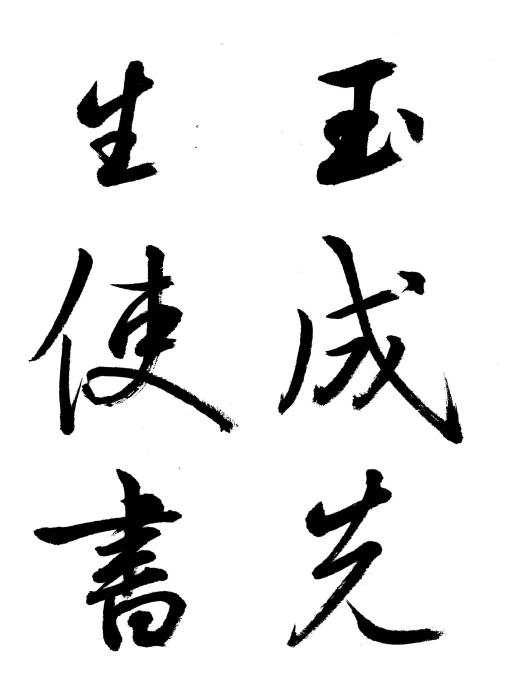 玉成先
生使書